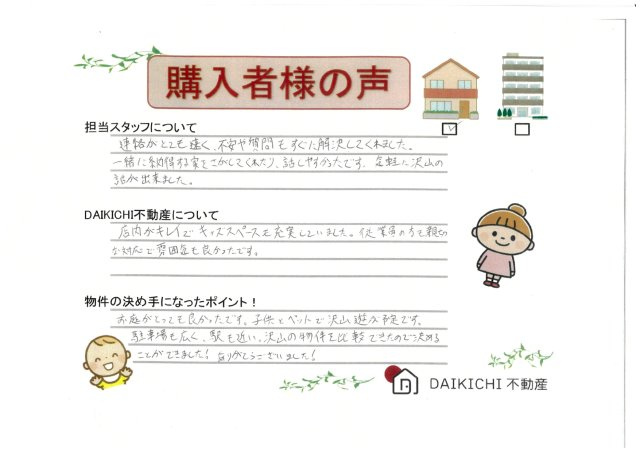 購入者様の声
担当スタッフについて
連絡がとても速く、不安や質問もすぐに解決してくれました。
一緒に納得する家をさがしてくれたり、話しやすかったです。気軽に沢山の
話が出来ました。
DAIKICHI不動産について
店内がキレイでキッズスペースも充実していました。従業員の方も親切
な対応で雰囲気も良かったです。
物件の決め手になったポイント！
お庭がとっても良かったです。子供とペットで沢山遊ぶ予定です。
駐車場も広く、駅も近い。沢山の物件を比較できたので決める
ことができました！ありがとうございました！
DAIKICHI 不動産